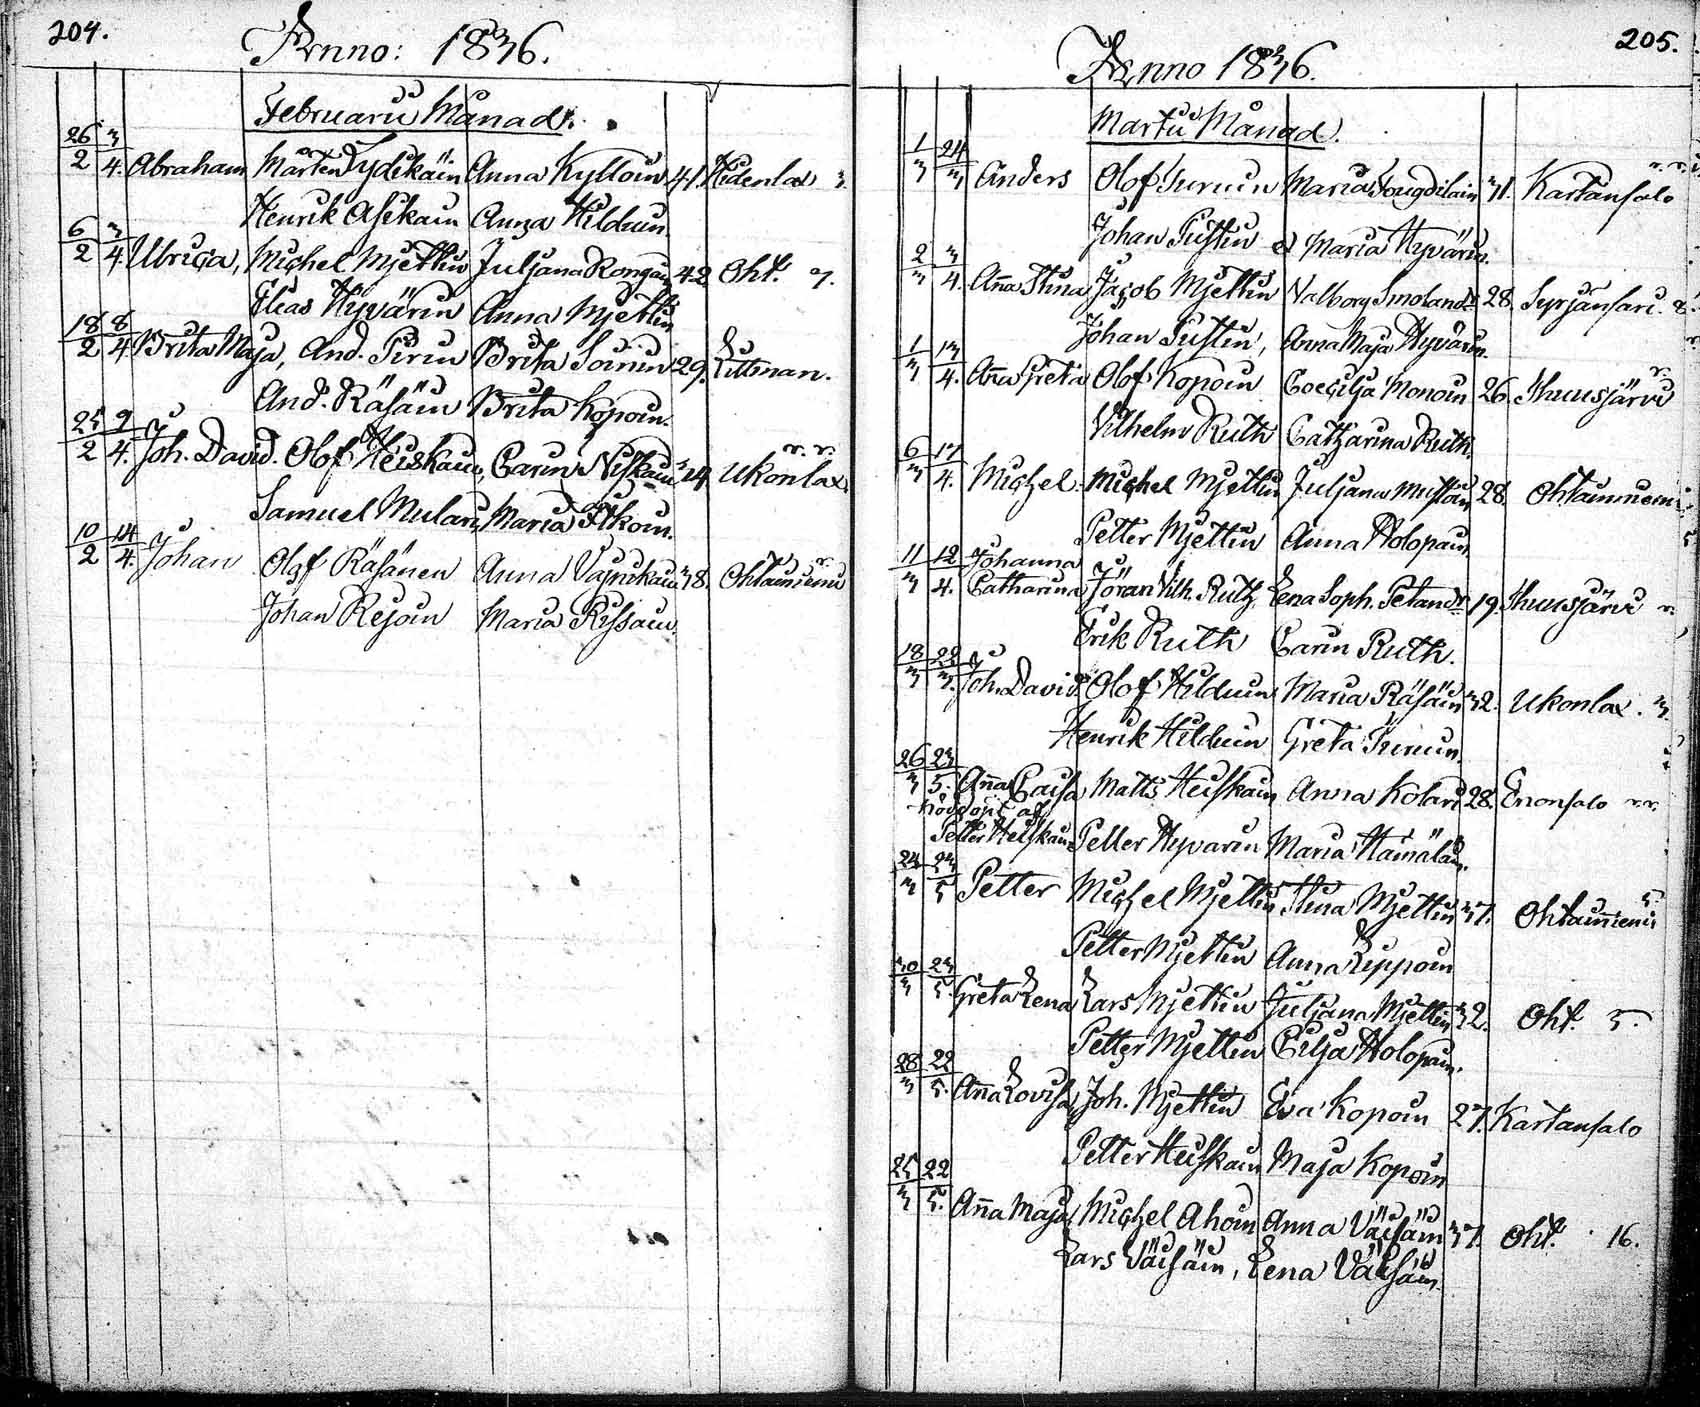 204.
Anno: 1836.
Februarii Månad.
26/2 3/4. Abraham Mårten Lydikäin Anna Kylloin 41. Hidenlax 3.
Henrik Asikain Anna Hilduin.
6/2 3/4. Ulrica, Michel Mjettin Juljana Rongain 42 Oht. 7.
Elias Hyvärin Anna Mjettin
18/2 8/4. Brita Maja, And. Pirin Brita Soinin 29. Littman.
And. Räsäin Brita Kopoin.
25/2 9/4. Joh. David. Olof Heiskain, Carin Niskain 34. Ukonlax.
Samuel Mulari, Maria Itkoin.
10/2 14/4. Johan Olof Räsänen Anna Vajnikain 38. Ohtainiemi
Johan Rejoin Maria Rissain.
205.
Anno 1836.
Martii Månad.
1/3 24/3 Anders Olof Turuin Maria Vougdilain 31. Kartansalo
Johan Pustin & Maria Hyvärin.
2/3 3/4. Anna Stina Jacob Mjettin Valborg Smolandr 28. Syrjänsari. 8.
Johan Pustin, Anna Maja Hyvärin.
1/3 13/4. Anna Greta Olof Kopoin Coecilja Monoin 26. Ihuusjärvi
Vilhelm Ruth Catharina Ruth.
6/3 17/4. Michel. Michel Mjettin Juljana Mustain 28. Ohtainniemi
Petter Mjettin Anna Holopain
11/3 12/4. Johanna
Catharina Jöran Vilh. Ruth, Lena Soph. Petandr 19. Ihuusjärvi
Erik Ruth Carin Ruth.
18/3 28/3. Joh. David. Olof Hilduin Maria Räsäin 32. Ukonlax. 3.
Henrik Hilduin Greta Turuin.
26/3 23/5. Anna Caisa Matts Heiskain Anna Kolari 28. Enonsalo
Nöddöpt af
Petter Heiskain Petter Hyvarin Maria Hämäläin.
24/3 23/5 Petter Michel Mjettin Stina Mjettin 37. Ohtainniemi 5.
Petter Mjettin Anna Lippoin
30/3 23/5. Greta Lena Lars Mjettin Juljana Mjettin 32. Oht. 5.
Petter Mjettin Cilja Holopain.
28/3 22/5. Anna Lovisa, Joh. Mjettin Eva Kopoin 27. Kartansalo
Petter Heiskain Maja Kopoin
25/3 22/5. Anna Maja, Michel Ahoin Anna Väisäin 37. Oht. 16.
Lars Väisäin, Lena Väisäin.